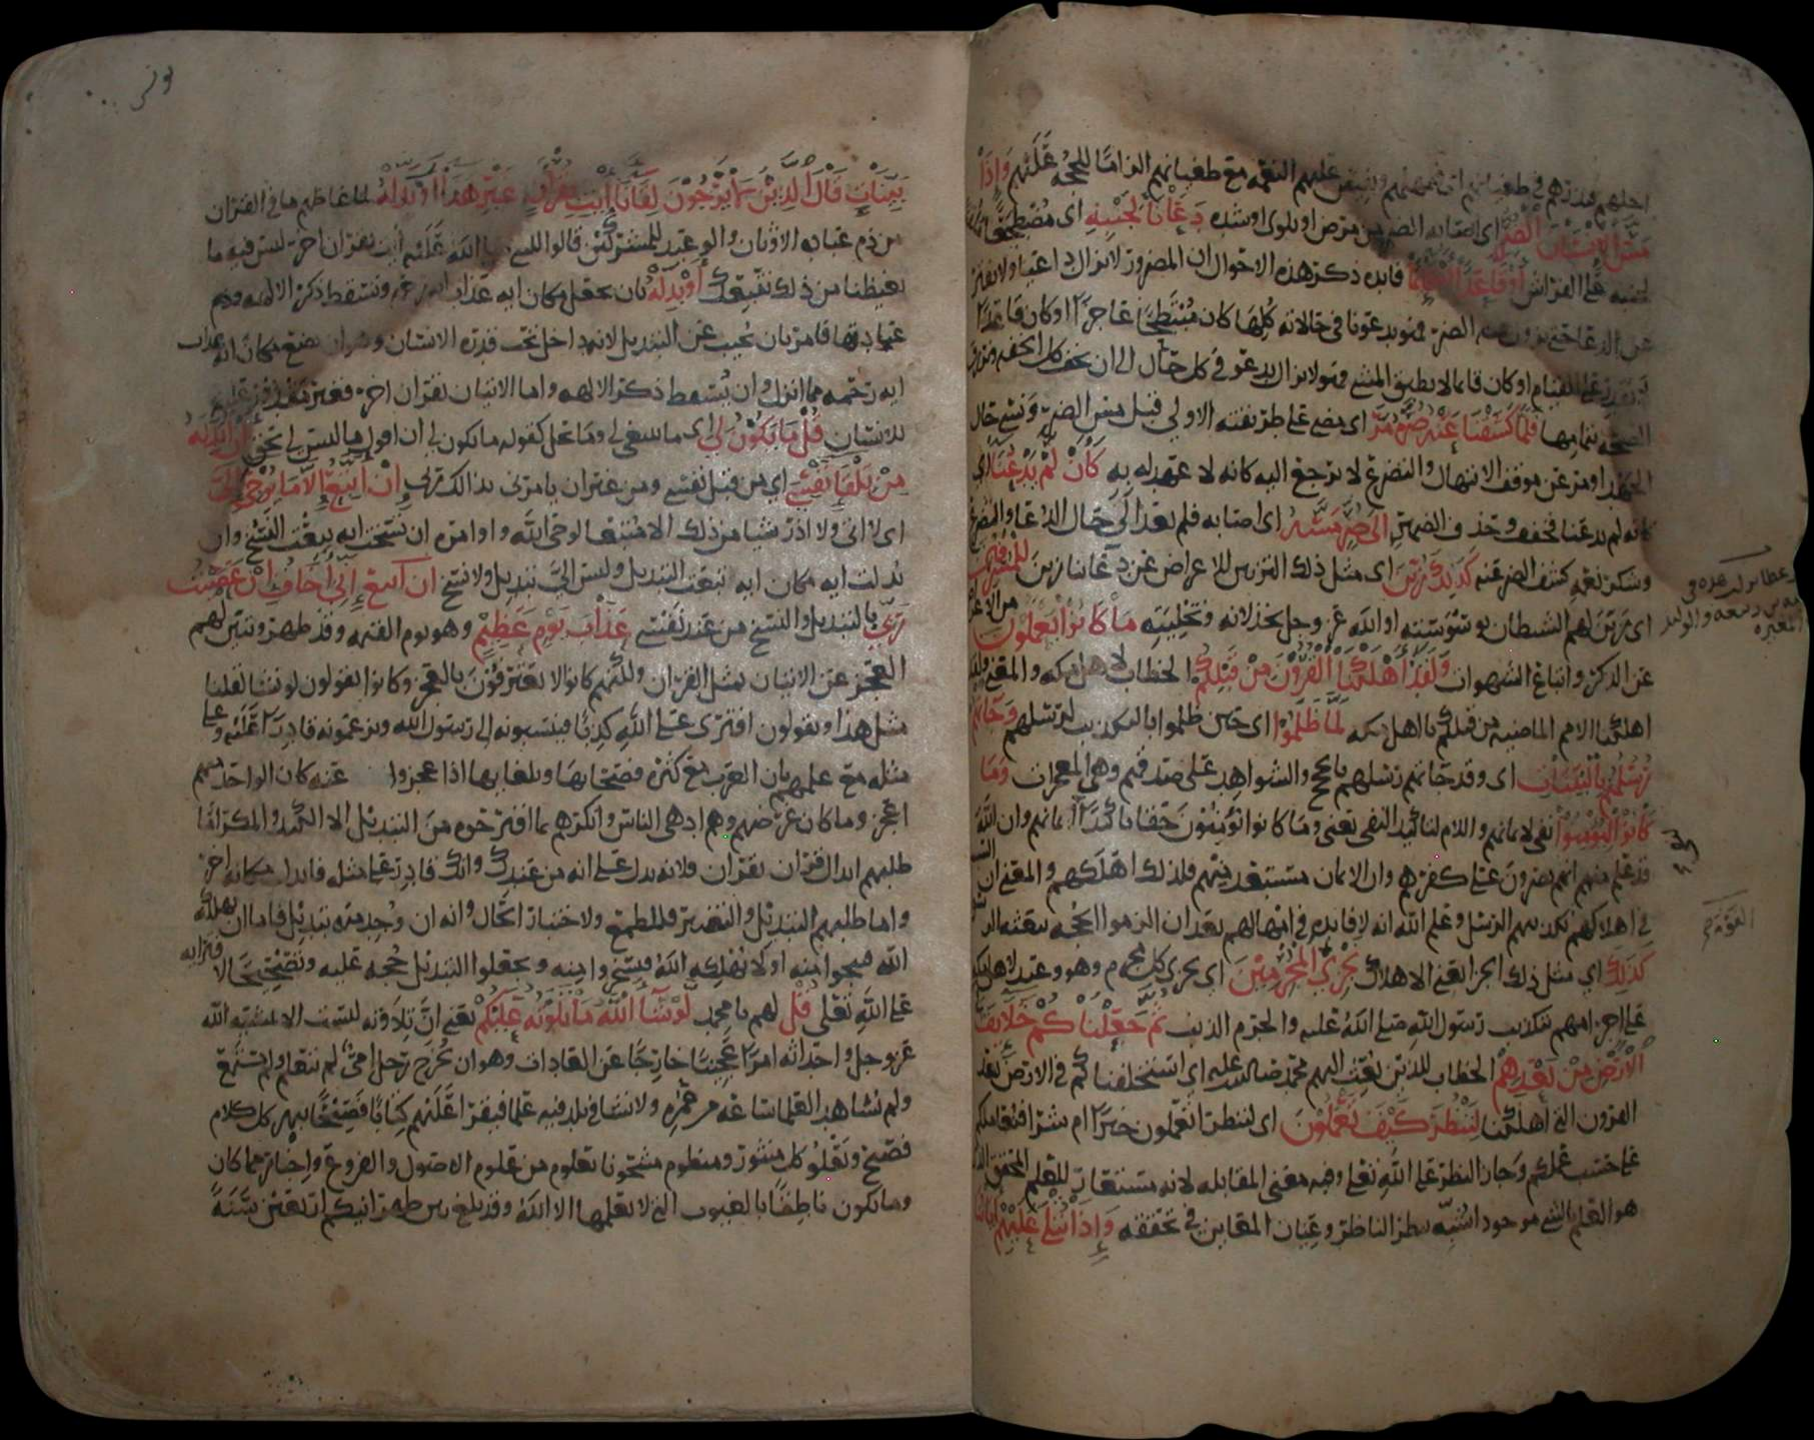 اجلهم فنذرهم في طغيانهم اي فنمهلهم ونفيض عليهم النعمة مع طغيانهم الزاما للحجة عليهم وَإِذَا
مَسَّ الْإِنْسَانَ الضُّرُّ اي اصابه الضر من مرض او بلوى او شده دَعَانَا لِجَنْبِهِ اى مضطجعا
لجنبه على الفراش أَوْ قَاعِدًا أَوْ قَائِمًا فايده ذكر هذه الاحوال ان المضرور لا يزال داعيا ولا يفتر
عن الدعا حتى يزول عنه الضر فهو يدعونا في حالاته كلها كان منبطحا عاجزا او كان قاعدا
لا يقدر على القيام او كان قايما لا يطيق المشي فهو لا يزال يدعو في كل حال الى ان يخف كل الخفه
الصحه بتمامها فَلَمَّا كَشَفْنَا عَنْهُ ضُرَّهُ مَرَّ اى مضى على طريقته الاولى قبل مس الضر ونسي حال
الجهد او مر عن موقف الابتهال والتضرع لا يرجع اليه كانه لا عهد له به كَأَنْ لَمْ يَدْعُنَا اي
كانه لم يدعنا فخفف وحذف الضمير إِلَى ضُرٍّ مَسَّهُ اى اصابه فلم يعد الى حال الدعا والتضرع
وشكر نعمه كشف الضر عنه كَذَلِكَ زُيِّنَ اى مثل ذلك التزيين للاعراض عن دعانا زين لِلْمُسْرِفِينَ
اى زين لهم الشيطان بوسوسته او الله عز وجل بخذلانه وتخليته مَا كَانُوا يَعْمَلُونَ من الاعراض
عن الذكر واتباع الشهوات وَلَقَدْ أَهْلَكْنَا الْقُرُونَ مِنْ قَبْلِكُمْ الخطاب لاهل مكه والمعنى ولقد
اهلكنا الامم الماضيه من قبلكم يا اهل مكه لَمَّا ظَلَمُوا اى حين ظلموا بالتكذيب لرسلهم وَجَاءَتْهُمْ
رُسُلُهُمْ بِالْبَيِّنَاتِ اى وقد جاتهم رسلهم بالحجج والشواهد على صدقهم وهى المعجزات وَمَا
كَانُوا لِيُؤْمِنُوا نفى لايمانهم واللام لتاكيد النفى يعنى وما كانوا يؤمنون حقا تاكيدا لايمانهم وان الله
قد علم منهم انهم يصرون على كفرهم وان الايمان مستبعد منهم فلذلك اهلكهم والمعنى ان السبب
في اهلاكهم تكذيبهم الرسل وعلم الله انه لا فايده في امهالهم بعد ان الزموا الحجه ببعثه الرسل
كَذَلِكَ اي مثل ذلك الجزا يعني الاهلاك نَجْزِي الْمُجْرِمِينَ اى نجزى كل مجرم وهو وعيد لاهل مكه
على اجرامهم بتكذيب رسول الله صلى الله عليه والحزم الذين ثُمَّ جَعَلْنَاكُمْ خَلَائِفَ
الْأَرْضِ مِنْ بَعْدِهِمْ الخطاب للذين بعث اليهم محمد صلى الله عليه اى استخلفناكم في الارض بعد
القرون التى اهلكنا لِنَنْظُرَ كَيْفَ تَعْمَلُونَ اى لننظر اتعملون خيرا ام شرا فنعاملكم
على حسب عملكم وجاز النظر على الله تعلى وفيه معنى المقابله لانه مستعار للعلم المحقق الذى
هو العلم بالشى موجودا شبه بنظر الناظر وعيان المعاين في تحققه وَإِذَا تُتْلَى عَلَيْهِمْ آيَاتُنَا
يونس
بَيِّنَاتٍ قَالَ الَّذِينَ لَا يَرْجُونَ لِقَاءَنَا ائْتِ بِقُرْآنٍ غَيْرِ هَذَا أَوْ بَدِّلْهُ لما غاظهم ما في القران
من ذم عباده الاوثان والوعيد للمشركين قالوا للنبى صلى الله عليه ايت بقران اخر ليس فيه ما
يغيظنا من ذلك نتبعك أَوْ بَدِّلْهُ بان تجعل مكان ايه عذاب ايه رحمه وتسقط ذكر الالهه وذم
عبادتها فامر بان يجيب عن التبديل لانه داخل تحت قدره الانسان وهو ان يضع مكان ايه عذاب
ايه رحمه مما انزل وان يسقط ذكر الالهه واما الاتيان بقران اخر فغير مقدور عليه
للانسان قُلْ مَا يَكُونُ لِي اى ما ينبغى لى وما يحل كقوله ما يكون لى ان اقول ما ليس لى بحق أَنْ أُبَدِّلَهُ
مِنْ تِلْقَاءِ نَفْسِي اى من قبل نفسى ومن غير ان يامرنى بذالك ربى إِنْ أَتَّبِعُ إِلَّا مَا يُوحَى إِلَيَّ
اى لا اتى ولا اذر شيا من ذلك الا متبعا لوحى الله واوامره ان نسخت ايه تبعت النسخ وان
بدلت ايه مكان ايه تبعت التبديل وليس الىّ تبديل ولا نسخ ان اتبع إِنِّي أَخَافُ إِنْ عَصَيْتُ
رَبِّي بالتبديل والنسخ من عند نفسى عَذَابَ يَوْمٍ عَظِيمٍ وهو يوم القيمه وقد ظهر وتبين لهم
العجز عن الاتيان بمثل القران ولكنهم كانوا لا يعترفون بالعجز وكانوا يقولون لو نشا لقلنا
مثل هذا ويقولون افترى على الله كذبا فينسبونه الى رسول الله ويزعمونه قادرا عليه وعلى
مثله مع علمهم بان العرب مع كثره فصحائها وبلغايها اذا عجزوا عنه كان الواحد منهم
اعجز وما كان غرضهم وهم ادهى الناس وانكرهم بما اقترحوه من التبديل الا الكيد والمكر اما
طلبهم ابدال قران بقران فلانه يدل على انه من عندك وانك قادر على مثله فابدل مكانه اخر
واما طلبهم التبديل والتغيير فللطمع ولاختبار الحال وانه ان وجد منه تبديل فاما ان يهلكه
الله فينجوا منه او لا يهلكه الله فيسخروا منه ويجعلوا التبديل حجه عليه وتصحيحا لافترايه
على الله تعلى قُلْ لهم يا محمد لَوْ شَاءَ اللَّهُ مَا تَلَوْتُهُ عَلَيْكُمْ يعنى ان تلاوته ليست الا بمشيه الله
عز وجل واحداثه امرا عجيبا خارجا عن العادات وهو ان يخرج رجل امى لم يتعلم ولم يستمع
ولم يشاهد العلما ساعه من عمره ولا نشا في بلد فيه علما فيقرا عليهم كتابا فصيحا يبهر كل كلام
فصيح ويعلو كل منثور ومنظوم مشحونا بعلوم من علوم الاصول والفروع واخبار مما كان
وما يكون ناطقا بالغيوب التى لا يعلمها الا الله وقد بلغ بين ظهرانيكم اربعين سنة